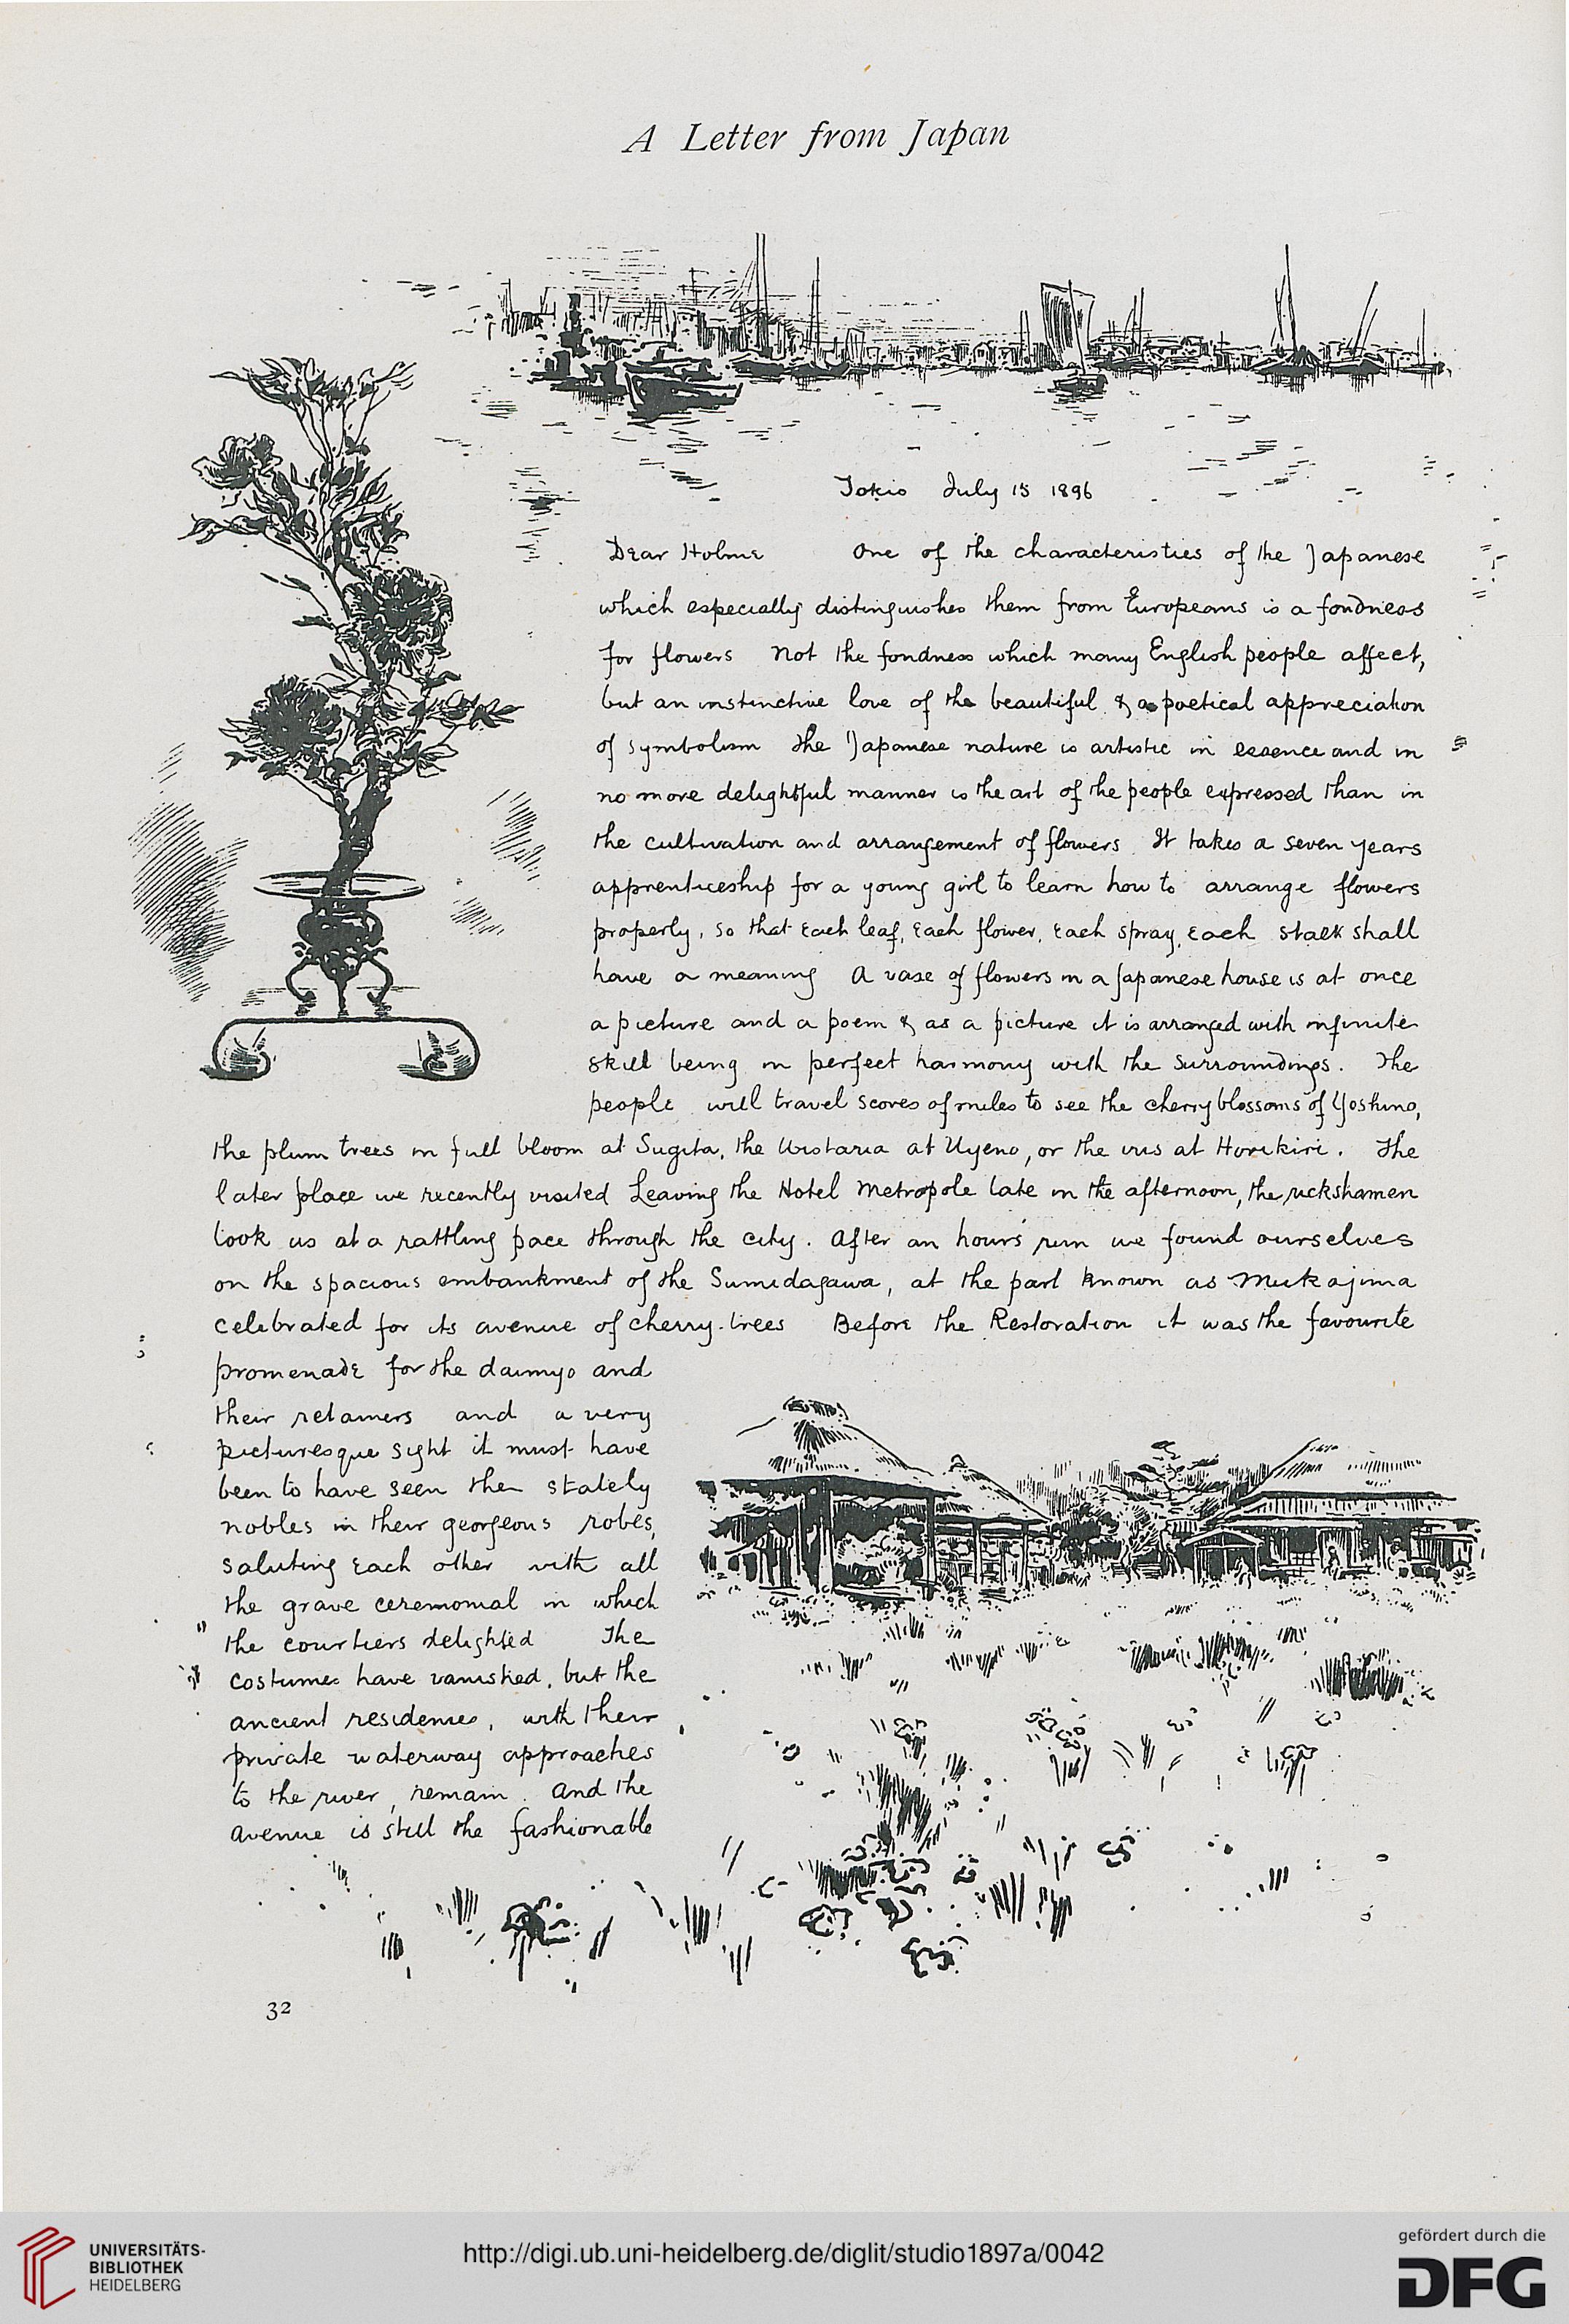 A Letter from Japan
Tokio July 15 1896
Dear Holme One of the characteristics of the Japanese
which especially distinguishes them from Europeans is a fondness
for flowers Not the fondness which many English people affect,
but an instinctive love of the beautiful & a poetical appreciation
of symbolism The Japanese nature is artistic in essence and in
no more delightful manner is the art of the people expressed than in
the cultivation and arrangement of flowers. It takes a seven years
apprenticeship for a young girl to learn how to arrange flowers
properly, so that each leaf, each flower, each spray, each stalk shall
have a meaning A vase of flowers in a Japanese house is at once
a picture and a poem & as a picture it is arranged with infinite
skill being in perfect harmony with the surroundings. The
people will travel scores of miles to see the cherry blossoms of Yoshino,
the plum trees in full bloom at Sugita, the Wistaria at Uyeno, or the iris at Horikiri. The
later place we recently visited Leaving the Hotel Metropole late in the afternoon, the rickshamen
took us at a rattling pace through the city. After an hours' run we found ourselves
on the spacious embankment of the Sumidagawa, at the part known as Mukojima
celebrated for its avenue of cherry-trees Before the Restoration it was the favourite
promenade for the daimyo and
their retainers and a very
picturesque sight it must have
been to have seen the stately
nobles in their georgeous robes,
saluting each other with all
the grave ceremonial in which
the courtiers delighted The
costumes have vanished, but the
ancient residences, with their
private waterway approaches
to the river, remain. And the
avenue is still the fashionable
32
UNIVERSITÄTS-
BIBLIOTHEK
HEIDELBERG
http://digi.ub.uni-heidelberg.de/diglit/studio1897a/0042
gefördert durch die
DFG